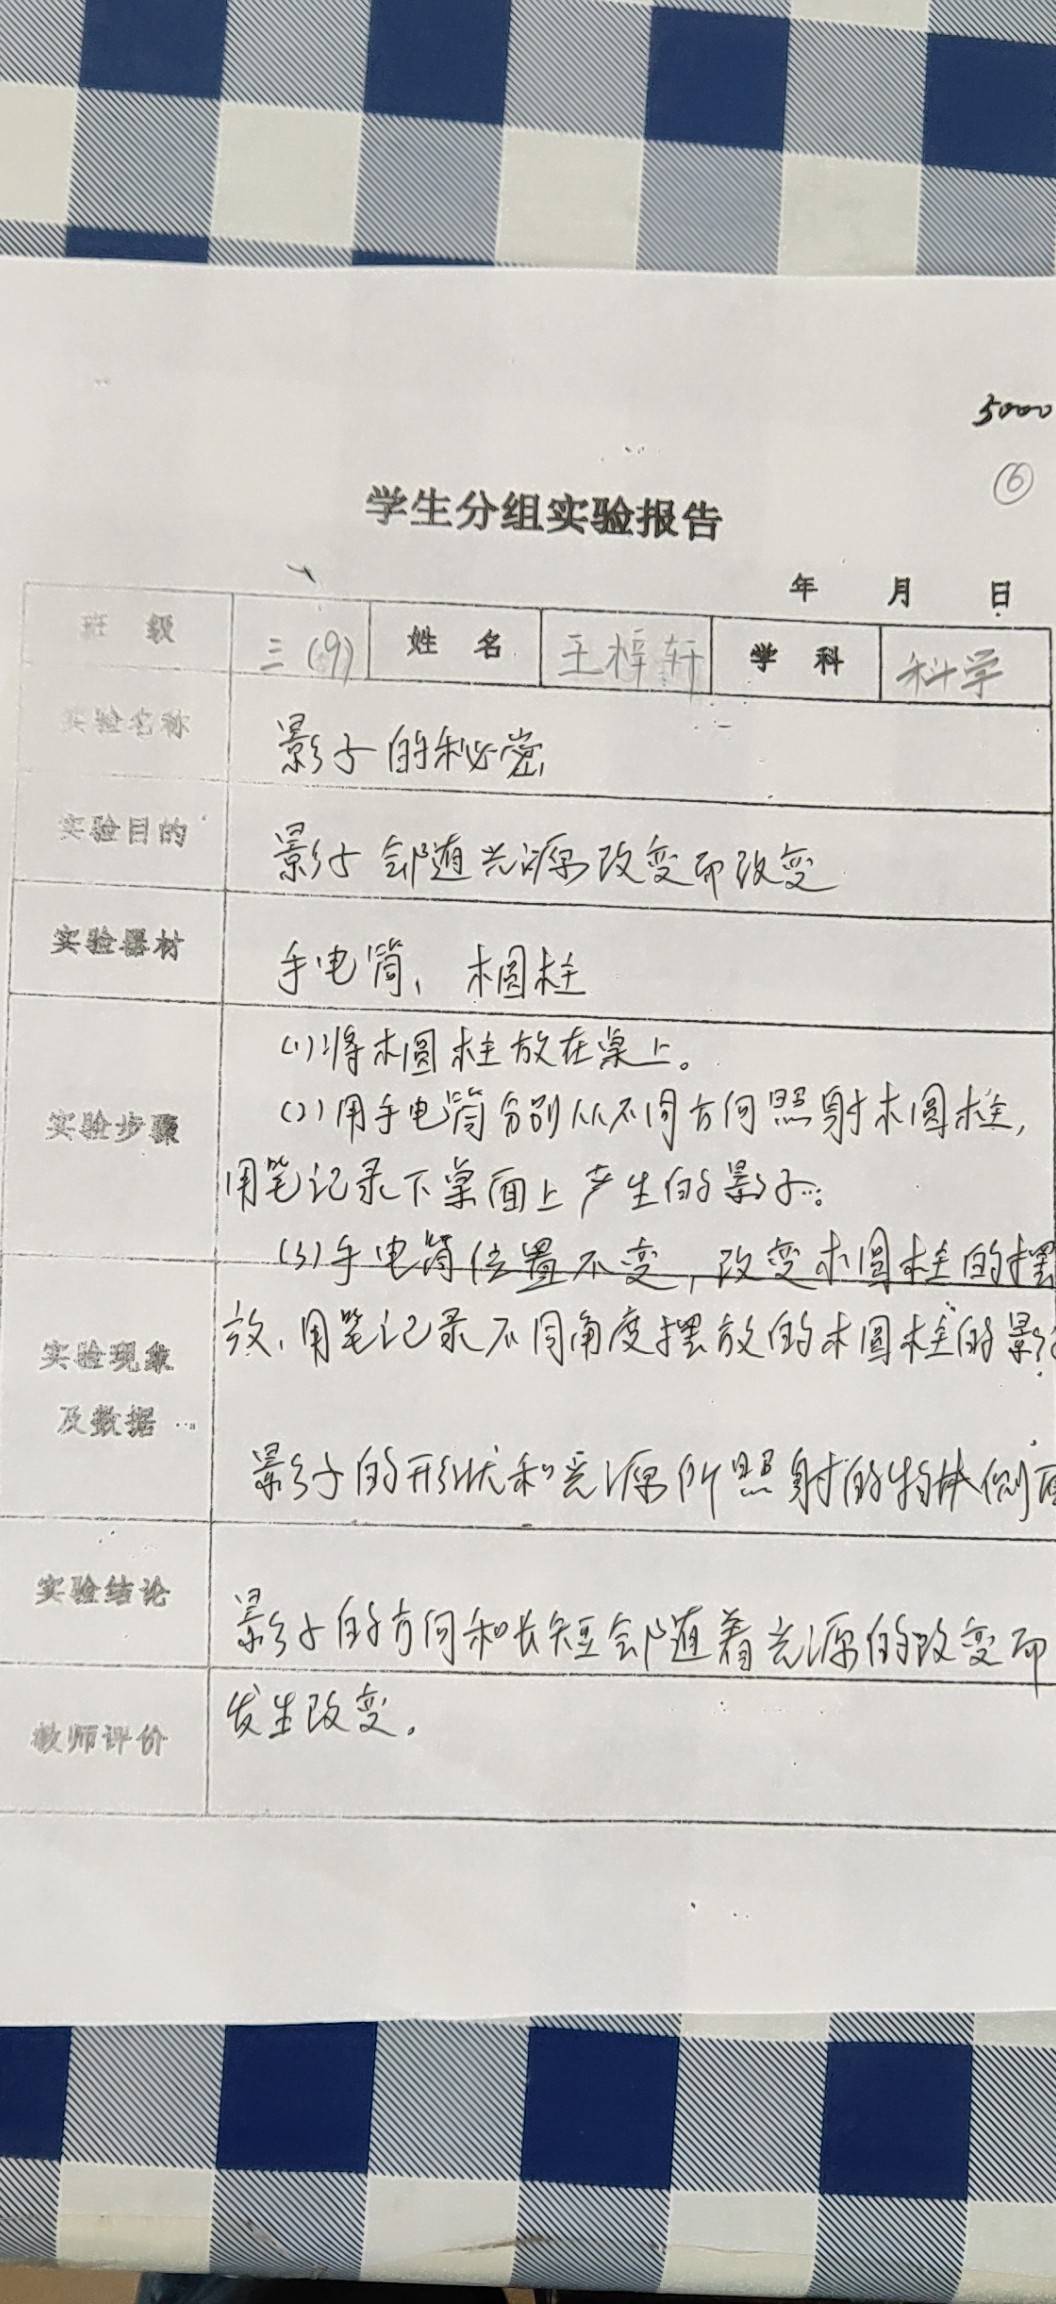 5000
⑥
学生分组实验报告
年 月 日
班 级 三(9) 姓 名 王梓轩 学 科 科学
实验名称 影子的秘密
实验目的 影子会随光源改变而改变
实验器材 手电筒、木圆柱
(1)将木圆柱放在桌上。
实验步骤 (2)用手电筒分别从不同方向照射木圆柱,
用笔记录下桌面上产生的影子。
(3)手电筒位置不变,改变木圆柱的摆
放,用笔记录不同角度摆放的木圆柱的影
实验现象
及数据
影子的形状和光源所照射的物体侧面
实验结论 影子的方向和长短会随着光源的改变而
发生改变。
教师评价